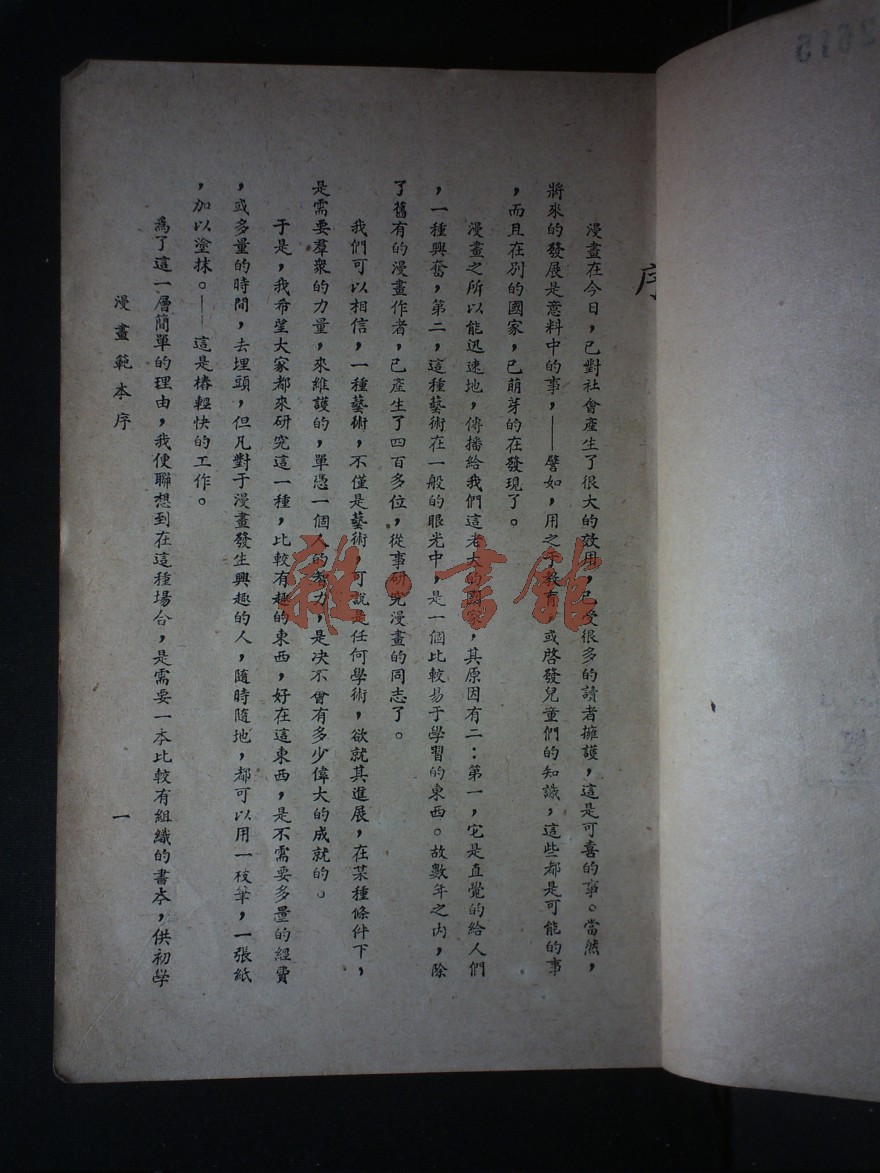 序
漫畫在今日，已對社會產生了很大的效用，已受很多的讀者擁護，這是可喜的事。當然，
將來的發展是意料中的事，——譬如，用之于教育，或啓發兒童們的知識，這些都是可能的事
，而且在別的國家，已萌芽的在發現了。
漫畫之所以能迅速地，傳播給我們這老大的國家，其原因有二：第一，它是直覺的給人們
，一種興奮，第二，這種藝術在一般的眼光中，是一個比較易于學習的東西。故數年之內，除
了舊有的漫畫作者，已產生了四百多位，從事研究漫畫的同志了。
我們可以相信，一種藝術，不僅是藝術，可說是任何學術，欲就其進展，在某種條件下，
是需要羣衆的力量，來維護的，單憑一個人的智力，是决不會有多少偉大的成就的。
于是，我希望大家都來研究這一種，比較有趣的東西，好在這東西，是不需要多量的經費
，或多量的時間，去埋頭，但凡對于漫畫發生興趣的人，隨時隨地，都可以用一枝筆，一張紙
，加以塗抹。——這是樁輕快的工作。
爲了這一層簡單的理由，我便聯想到在這種場合，是需要一本比較有組織的書本，供初學
漫畫範本序
一
雜·書館
2615